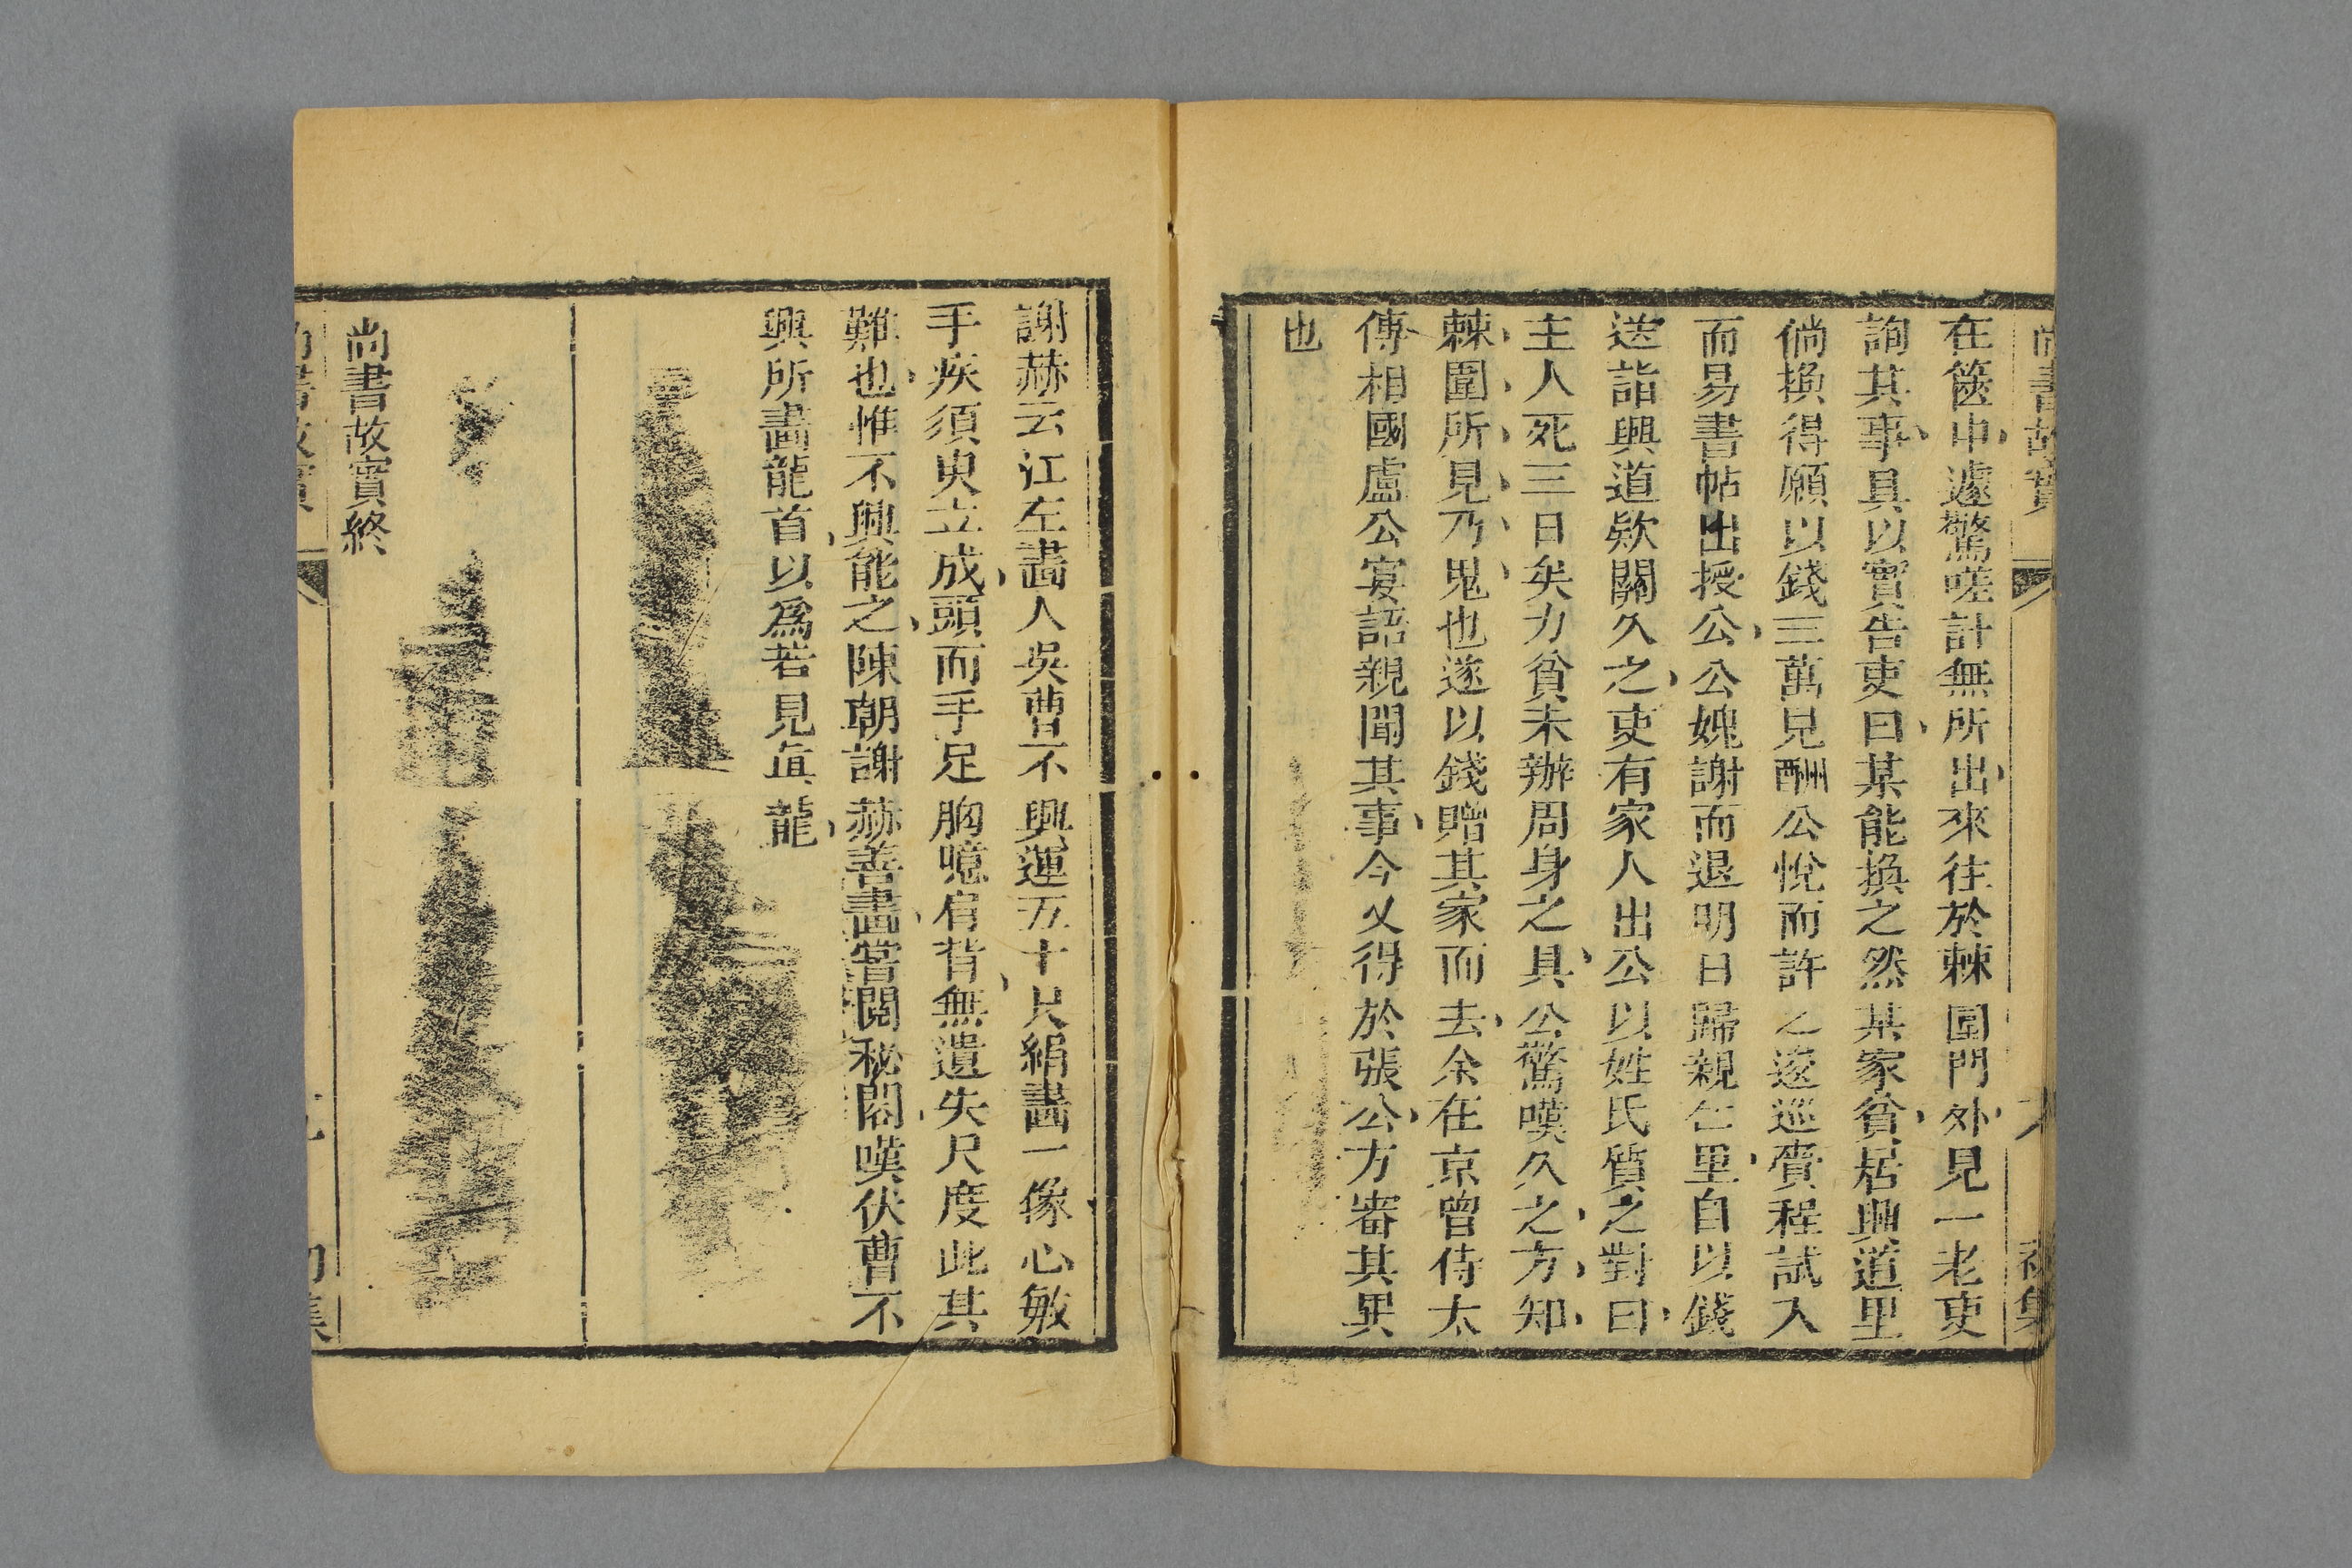 尚書故實
在篋中遽驚嗟計無所出來往於棘圍門外見一老吏
詢其事具以實告吏曰某能換之然某家貧居興道里
倘換得願以錢三萬見酬公悅而許之逡巡賫程試入
而易書帖出授公公媿謝而退明日歸親仁里自以錢
送詣興道欵關久之吏有家人出公以姓氏質之對曰
主人死三日矣力貧未辦周身之具公驚嘆久之方知
棘圍所見乃鬼也遂以錢贈其家而去余在京曾侍太
傅相國盧公宴語親聞其事今又得於張公方審其異
也
謝赫云江左畵人吳曹不興運五十尺絹畵一像心敏
手疾須臾立成頭而手足胸噫肩背無遺失尺度此其
難也惟不興能之陳朝謝赫善畵嘗閱秘閣嘆伏曹不
興所畵龍首以爲若見眞龍
尚書故實終